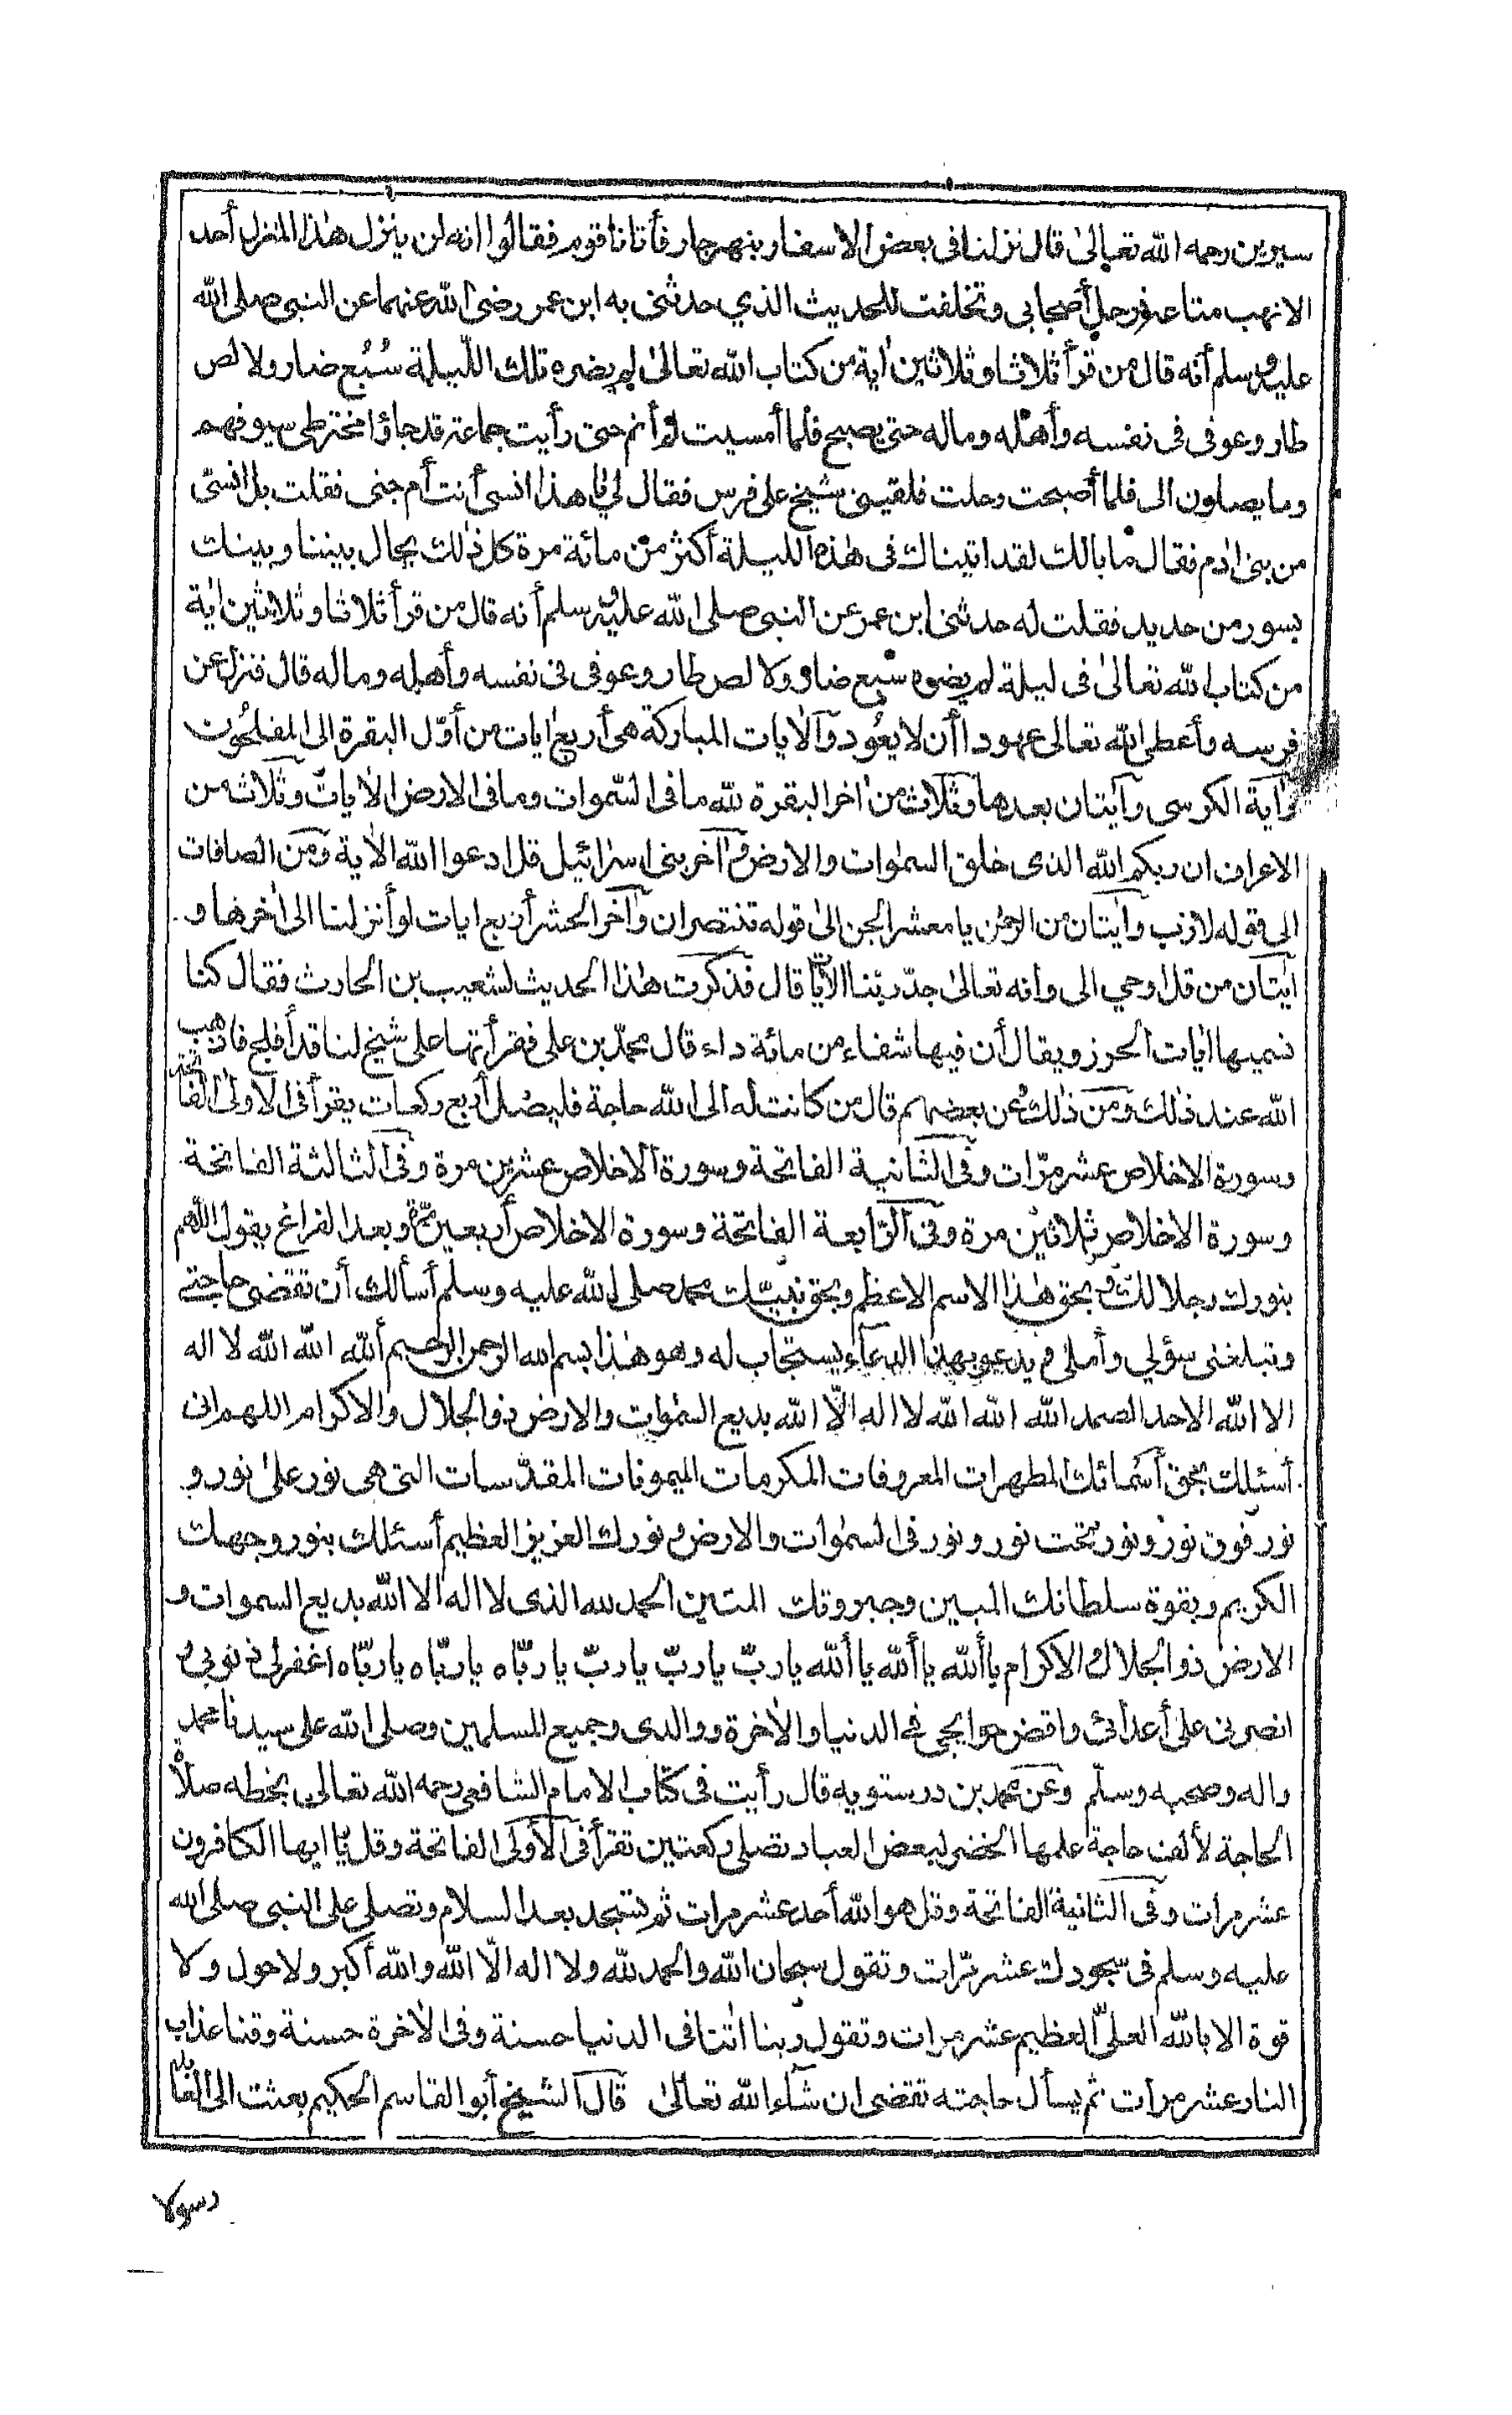 سيرين رحمه الله تعالىٰ قال نزلنا فى بعض الاسفار بنهر جار فأتانا قوم فقالوا انه لن ينزل هٰذا المنزل أحد
الا نهب متاعه فرحل أصحابى وتخلفت للحديث الذي حدثنى به ابن عمر رضى الله عنهما عن النبى صلى الله
عليه وسلم أنه قال من قرأ ثلاثا وثلاثين اٰية من كتاب الله تعالىٰ لم يضره تلك اللّيلة سُبُع ضار ولا لص
طار وعوفى فى نفسه وأهله وماله حتى يصبح فلما أمسيت لم أنم حتى رأيت جماعة قد جاؤا مخترطى سيوفهم
وما يصلون الى فلما أصبحت رحلت فلقينى شيخ على فرس فقال لي يا هذا انسى أنت أم جنى فقلت بل انسىّ
من بنى اٰدم فقال ما بالك لقد اتيناك فى هٰذه الليلة أكثر من مائة مرة كل ذٰلك يحال بيننا وبينك
بسور من حديد فقلت له حدثنى ابن عمر عن النبى صلى الله عليه وسلم أنه قال من قرأ ثلاثا وثلاثين اٰية
من كتاب الله تعالىٰ فى ليلة لم يضره سبع ضار ولا لص طار وعوفى فى نفسه وأهله وماله قال فنزل عن
فرسه وأعطى الله تعالى عهودا أن لا يعُود والاٰيات المباركة هى أربع اٰيات من أوّل البقرة الى المفلحُون
واٰية الكرسى واٰيتان بعدها وثلاث من اٰخر البقرة لله ما فى السّموات وما فى الارض الاٰيات وثلاث من
الاعراف ان ربكم الله الذى خلق السمٰوات والارض واٰخر بنى اسرائيل قل ادعوا الله الاٰية ومن الصافات
الى قوله لازب واٰيتان من الرحمٰن يا معشر الجن الىٰ قوله تنتصران واٰخر الحشر أربع ايات لو أنزلنا الى اٰخرها و
اٰيتان من قل اوحي الى وانه تعالىٰ جدّ ربّنا الاٰية قال فذكرت هٰذا الحديث لشعيب بن الحارث فقال كنا
نسميها اٰيات الحرز ويقال أن فيها شفاء من مائة داء قال محمّد بن على فقرأتها على شيخ لنا قد أفلج فاذهب
الله عنه ذٰلك ومن ذٰلك عن بعضهم قال من كانت له الى الله حاجة فليصُل أربع ركعات يقرأ فى الاولىٰ الفاتحة
وسورة الاخلاص عشر مرّات وفى الثّانية الفاتحة وسورة الاخلاص عشرين مرة وفى الثالثة الفاتحة
وسورة الاخلاص ثلاثين مرة وفى الرّابعة الفاتحة وسورة الاخلاص أربعين مرّة وبعد الفراغ يقول اللّهم
بنورك وجلالك و بحق هٰذا الاسم الاعظم وبحق نبيّك محمد صلى الله عليه وسلم أسألك أن تقضى حاجتى
وتبلغنى سؤلي وأملى و يدعو بهٰذا الدعاء يستجاب له وهو هٰذا بسم الله الرحمن الرحيم ألله الله الله لا اله
الا الله الاحد الصمد الله الله الله لا اله الّا الله بديع السمٰوات والارض ذو الجلال والاكرام اللهم انى
أسئلك بحق أسمائك المطهرات المعروفات المكرمات الميمونات المقدّسات التى هى نور علىٰ نور و
نور فوق نور ونور تحت نور ونور فى السمٰوات والارض و نورك العزيز العظيم أسئلك بنور وجهك
الكريم وبقوة سلطانك المبين وجبروتك المتين الحمد لله الذى لا اله الا الله بديع السموات و
الارض ذو الجلال والاكرام يا ألله يا ألله يا ألله يا ربّ يا ربّ يا ربّ يا ربّاه يا ربّاه يا ربّاه اغفر لى ذنوبى و
انصرنى على أعدائى واقض حوايجى فى الدنيا والاٰخرة ووالدى وجميع المسلمين وصلى الله على سيدنا محمد
واله وصحبه وسلّم وعن محمد بن درستويه قال رأيت فى كتاب الامام الشافعى رحمه الله تعالى بخطه صلاة
الحاجة لألف حاجة علمها الخضر لبعض العباد تصلى ركعتين تقرأ فى الأولى الفاتحة وقل يٰا ايها الكافرون
عشر مرات وفى الثانية الفاتحة وقل هو الله أحد عشر مرات ثم تسجد بعد السلام وتصلى على النبى صلى الله
عليه وسلم فى سجودك عشر مرّات وتقول سبحان الله والحمد لله ولا اله الّا الله والله أكبر ولا حول ولا
قوة الا بالله العلىّ العظيم عشر مرات وتقول ربنا اٰتنا فى الدنيا حسنة وفى الاٰخرة حسنة وقنا عذاب
النار عشر مرات ثم يسأل حاجته تقضى ان شاء الله تعالىٰ قال الشيخ أبو القاسم الحكيم بعثت الى العابد
رسولا